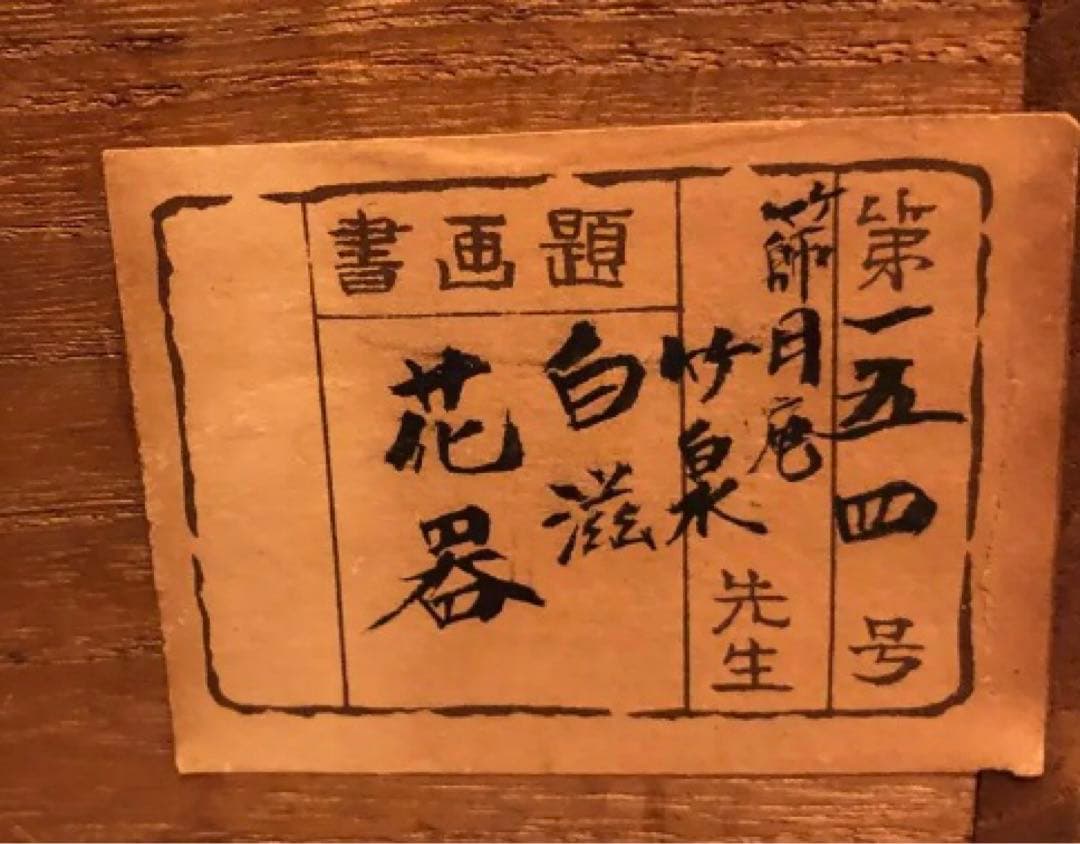 第一五四号
篩月庵
竹泉先生
書画題
白滋
花器